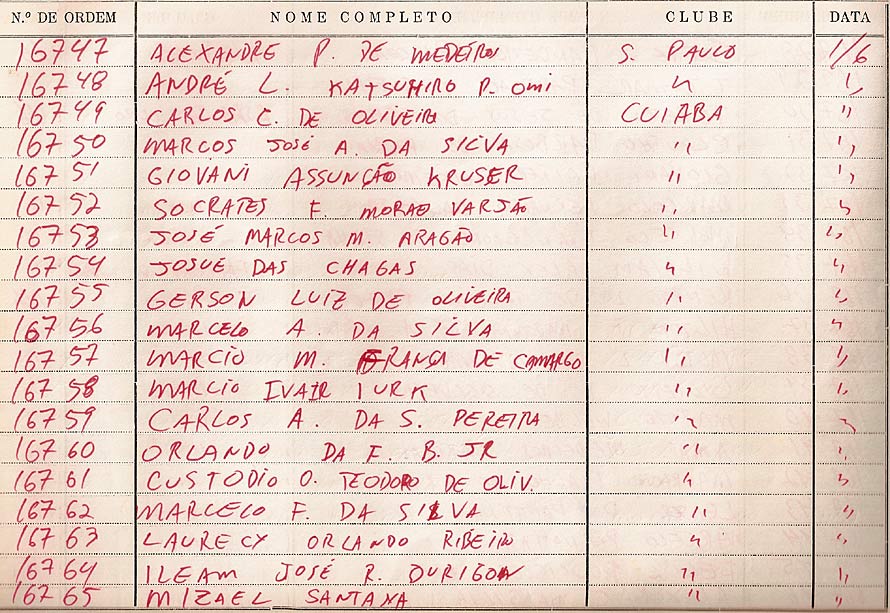 N.º DE ORDEM NOME COMPLETO CLUBE DATA
16747 ALEXANDRE P. DE MEDEIROS S. PAULO 1/6
16748 ANDRÉ L. KATSUHIRO P. OMI " "
16749 CARLOS E. DE OLIVEIRA CUIABA "
16750 MARCOS JOSÉ A. DA SILVA " "
16751 GIOVANI ASSUNÇÃO KRUSER " "
16752 SOCRATES F. MORAO VARJÃO " "
16753 JOSÉ MARCOS M. ARAGÃO " "
16754 JOSUE DAS CHAGAS " "
16755 GERSON LUIZ DE OLIVEIRA " "
16756 MARCELO A. DA SILVA " "
16757 MARCIO M. FRANÇA DE CAMARGO " "
16758 MARCIO IVAIR IURK " "
16759 CARLOS A. DA S. PEREIRA " "
16760 ORLANDO DA F. B. JR " "
16761 CUSTODIO O. TEODORO DE OLIV. " "
16762 MARCELO F. DA SILVA " "
16763 LAURECY ORLANDO RIBEIRO " "
16764 ILEAM JOSÉ R. DURIGON " "
16765 MIZAEL SANTANA " "